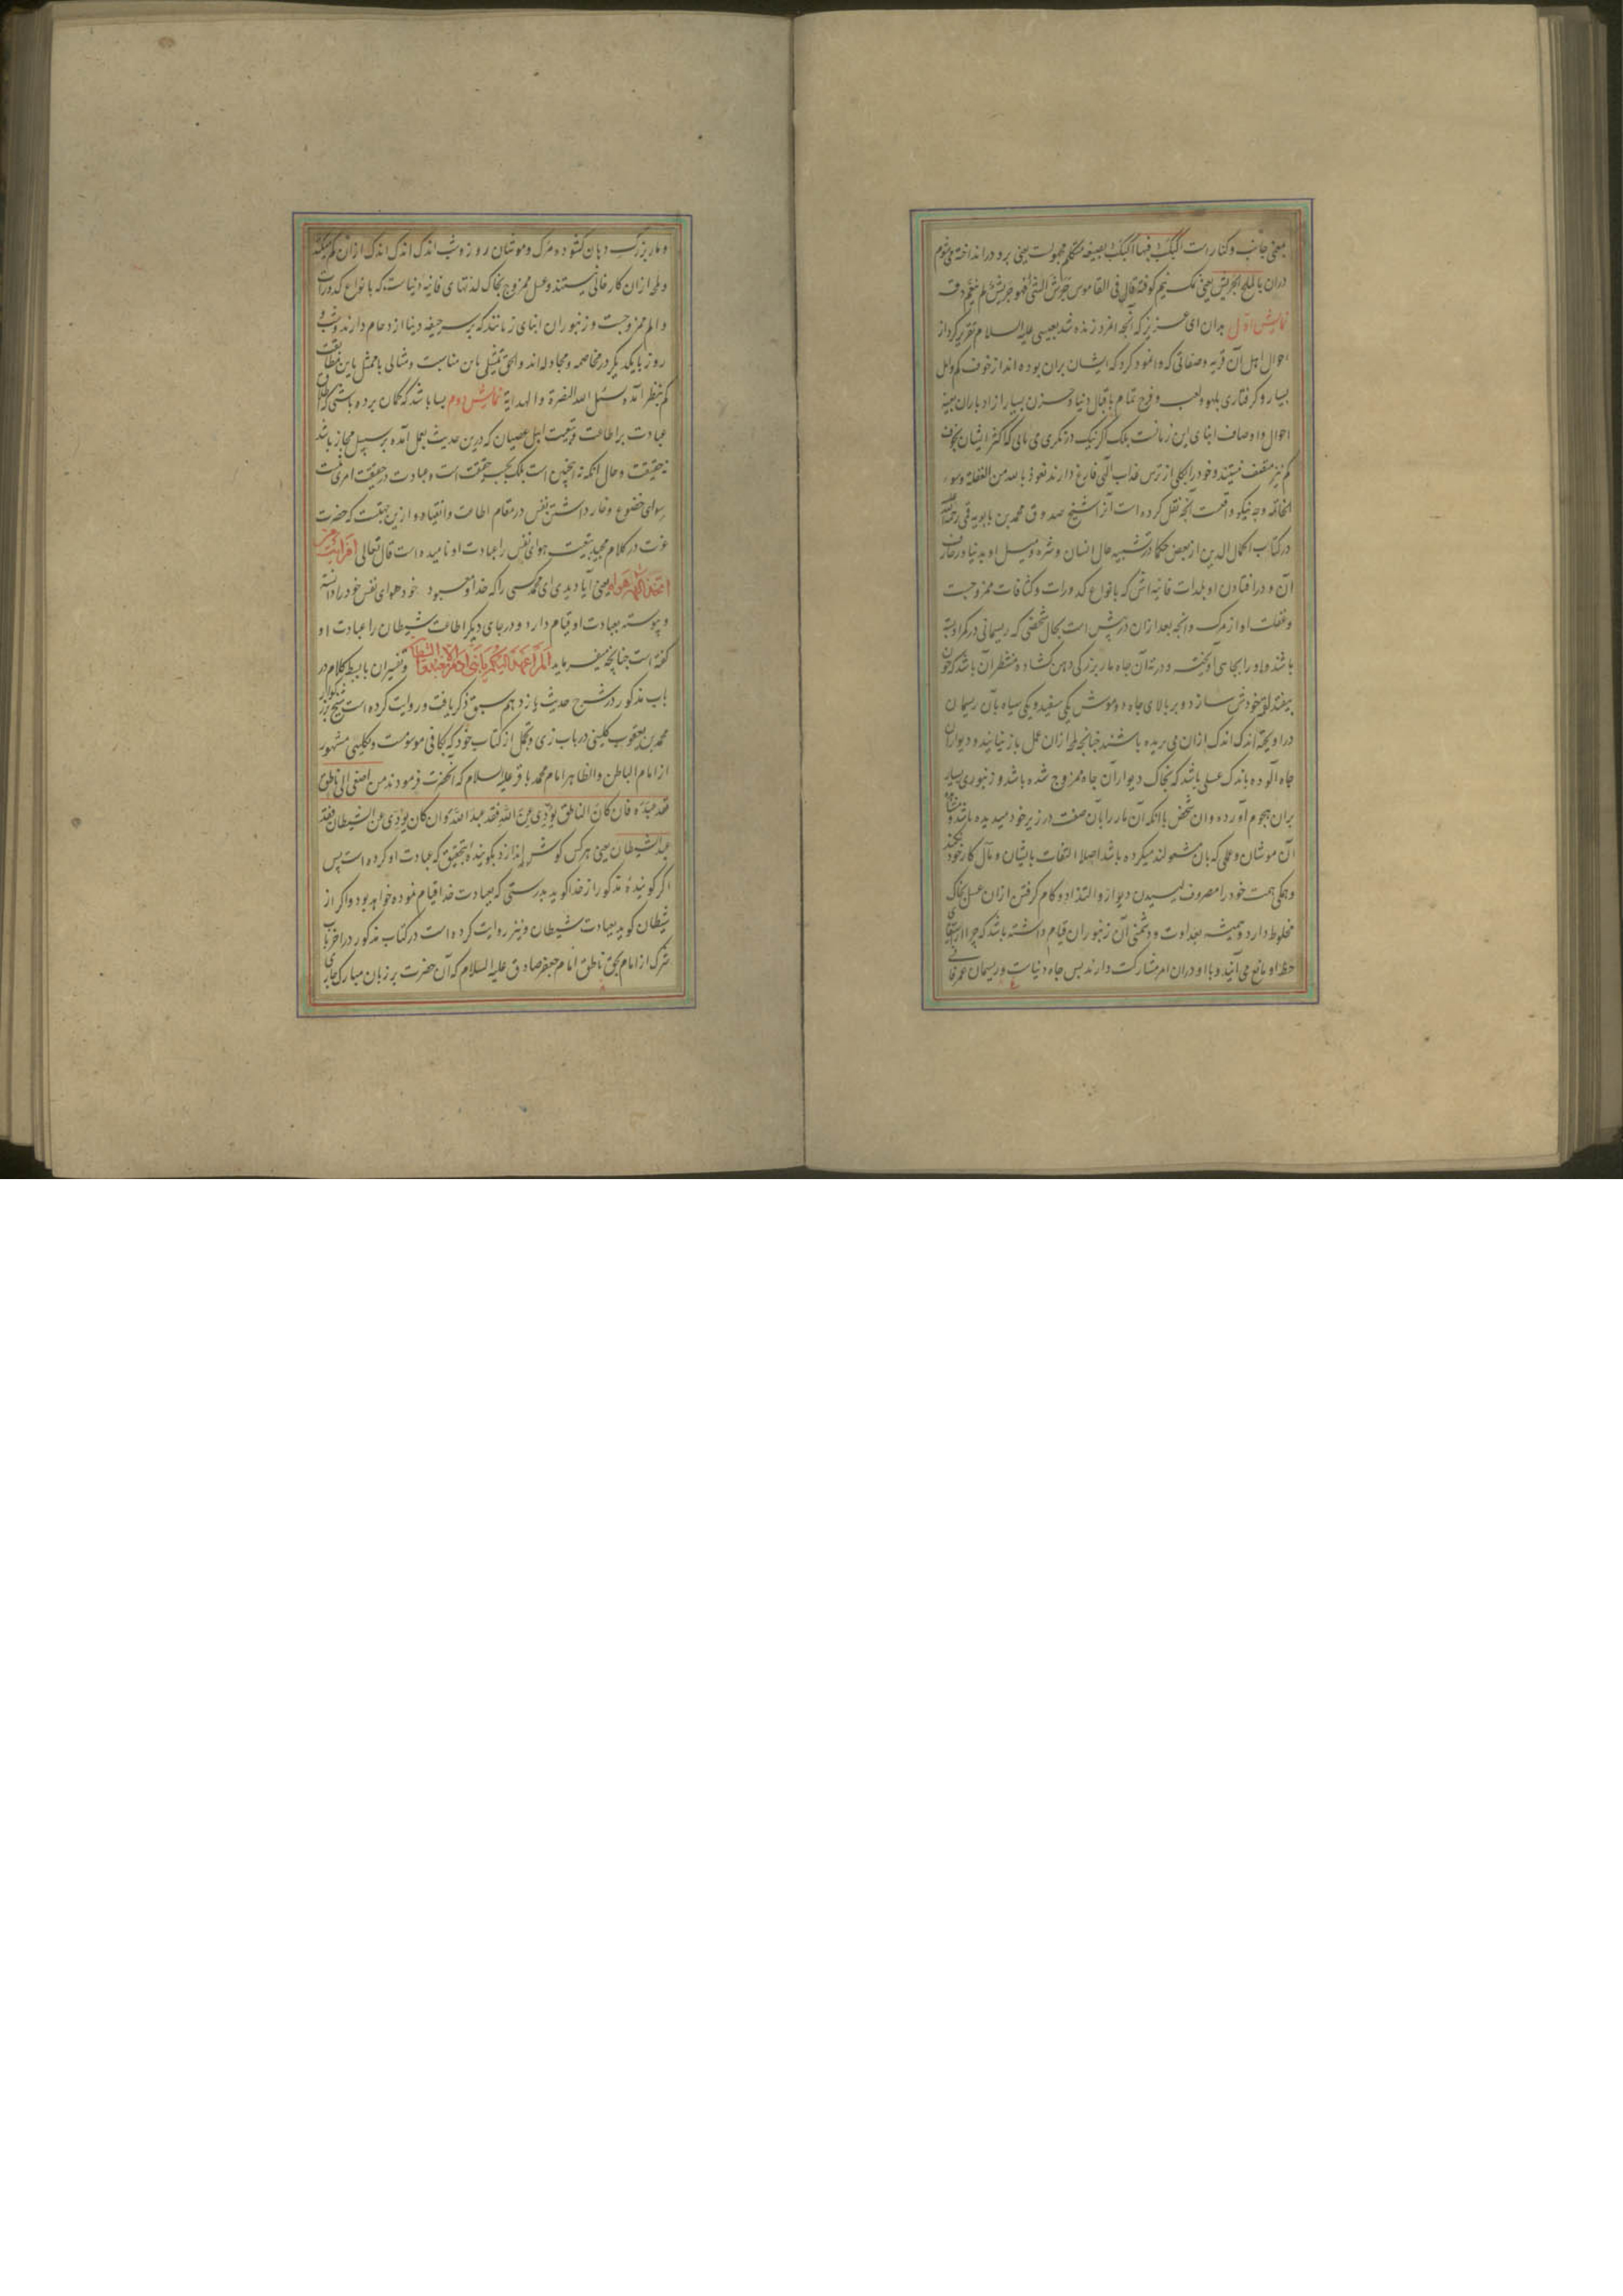 بمعنی جانب و کنار است اکبک فیها اکبک بصیغه متکلم مجهولست یعنی برو در انداخته میشوم
دران بالملح الجریش یعنی نمک نیم کوفته قال فی القاموس جرش الشئ فهو جریش لم ینعم دقه
نمایش اول بدان ای عزیز که آنچه امرد زنده شد بعیسی علیه السلام تقریر کرد از
احوال اهل آن قریه و صفاتی که وانمود کرد که ایشان بران بوده اند از خوف کم و امل
بسیار و گرفتاری بلهو و لعب و فرح تمام باقبال دنیا و حزن بسیار از ادبار ان بعینه
احوال و اوصاف ابنای این زمانست بلکه اگر نیک در نگری می یابی که اکثر ایشان بخوف
کم نیز متصف نیستند و خود را بکلی از ترس عذاب الهی فارغ دارند نعوذ بالله من الغفلة وسوء
الخاتمه و چه نیکو واقعست آنچه نقل کرده است آنرا شیخ صدوق محمد بن بابویه قمی رحمة الله
در کتاب اکمال الدین از بعض حکما در تشبیه حال انسان و شره و میل او بدنیا و زخارف
آن و در افتادن او بلذات فانیه اش که بانواع کدورات و کثافات ممزوجست
و غفلت او از مرک و آنچه بعد ازان در پیش است بحال شخصی که ریسمانی در کمر او بسته
باشند و او را بچاهی آویخته و در ته آن چاه مار بزرگی دهن گشاده و منتظر آن باشد که چون
بیفتد لقمه خودش سازد و بر بالای چاه دو موش یکی سفید و یکی سیاه بآن ریسمان
در آویخته اندک اندک ازان می بریده باشند چنانچه لمحه ازان عمل باز نیایند و دیوار آن
چاه آلوده باندک عسلی باشد که بخاک دیوار آن چاه ممزوج شده باشد و زنبوری بسیار
بران هجوم آورده و ان شخص با آنکه آن مار را بآن صفت در زیر خود میدیده باشد و مشاهده
آن موشان و عملی که بان مشغولند میکرده باشد اصلا التفات بایشان و مآل کار خود نکند
و همگی همت خود را مصروف لیسیدن دیوار و التذاذ و کام گرفتن ازان عسل بخاک
مخلوط دارد و همیشه بعداوت و دشمنی آن زنبوران قیام داشته باشد که چرا از استیفای
حظ او مانع می آیند و با او دران امر مشارکت دارند پس چاه دنیاست و ریسمان عمر فانی
و مار بزرگ دهان گشوده مرک و موشان روز و شب اندک اندک ازان کم میکنند
و لمحه ازان کار خالی نیستند و عسل ممزوج بخاک لذتهای فانیه دنیاست که بانواع کدورات
و الم ممزوجست و زنبوران ابنای زمانند که بر سر جیفه دنیا ازدحام دارند و شب و
روز با یکدیگر در مخاصمه و مجادله اند و الحق تمثیلی باین مناسبت و مثالی با ممثل باین مطابقت
کم بنظر آمده و نسئل الله النصرة والهدایة نمایش دوم بسا باشد که گمان برده باشی که اطلاق
عبادت بر اطاعت و تبعیت اهل عصیان که درین حدیث بعمل آمده بر سبیل مجاز باشد
نه حقیقت و حال آنکه نه اینچنین است بلکه بحسب حقیقت است و عبادت در حقیقت امری نیست
سوای خضوع و خار داشتن نفس در مقام اطاعت و انقیاد و ازین جهتست که حضرت
عزت در کلام مجید تبعیت هوای نفس را عبادت او نامیده است قال تعالی افرایت من
اتخذ الهه هواه یعنی آیا دیدی ای محمد کسی را که خدا و معبود خود هوای نفس خود را دانسته
و پیوسته بعبادت او قیام دارد و در جای دیگر اطاعت شیطان را عبادت او
گفته است چنانچه میفرماید الم اعهد الیکم یا بنی آدم ان لا تعبدوا الشیطان و تفسیر ان با بسط کلام در
باب مذکور در شرح حدیث یازدهم سبق ذکر یافت و روایت کرده است شیخ بزرگوار
محمد بن یعقوب کلینی در باب زی و تجمل از کتاب خود که بکافی موسومست و بکلینی مشهور
از امام الباطن و الظاهر امام محمد باقر علیه السلام که آنحضرت فرمودند من اصغی الی ناطق
فقد عبده فان کان الناطق یؤدی عن الله فقد عبد الله و ان کان یؤدی عن الشیطان فقد
عبد الشیطان یعنی هر کس گوش اندازد بگوینده بتحقیق که عبادت او کرده است پس
اگر گوینده مذکور از خدا گوید بدرستی که بعبادت خدا قیام نموده خواهد بود و اگر از
شیطان گوید بعبادت شیطان و نیز روایت کرده است در کتاب مذکور در اخر باب
شرک از امام بحق ناطق امام جعفر صادق علیه السلام که آن حضرت بر زبان مبارک جاری